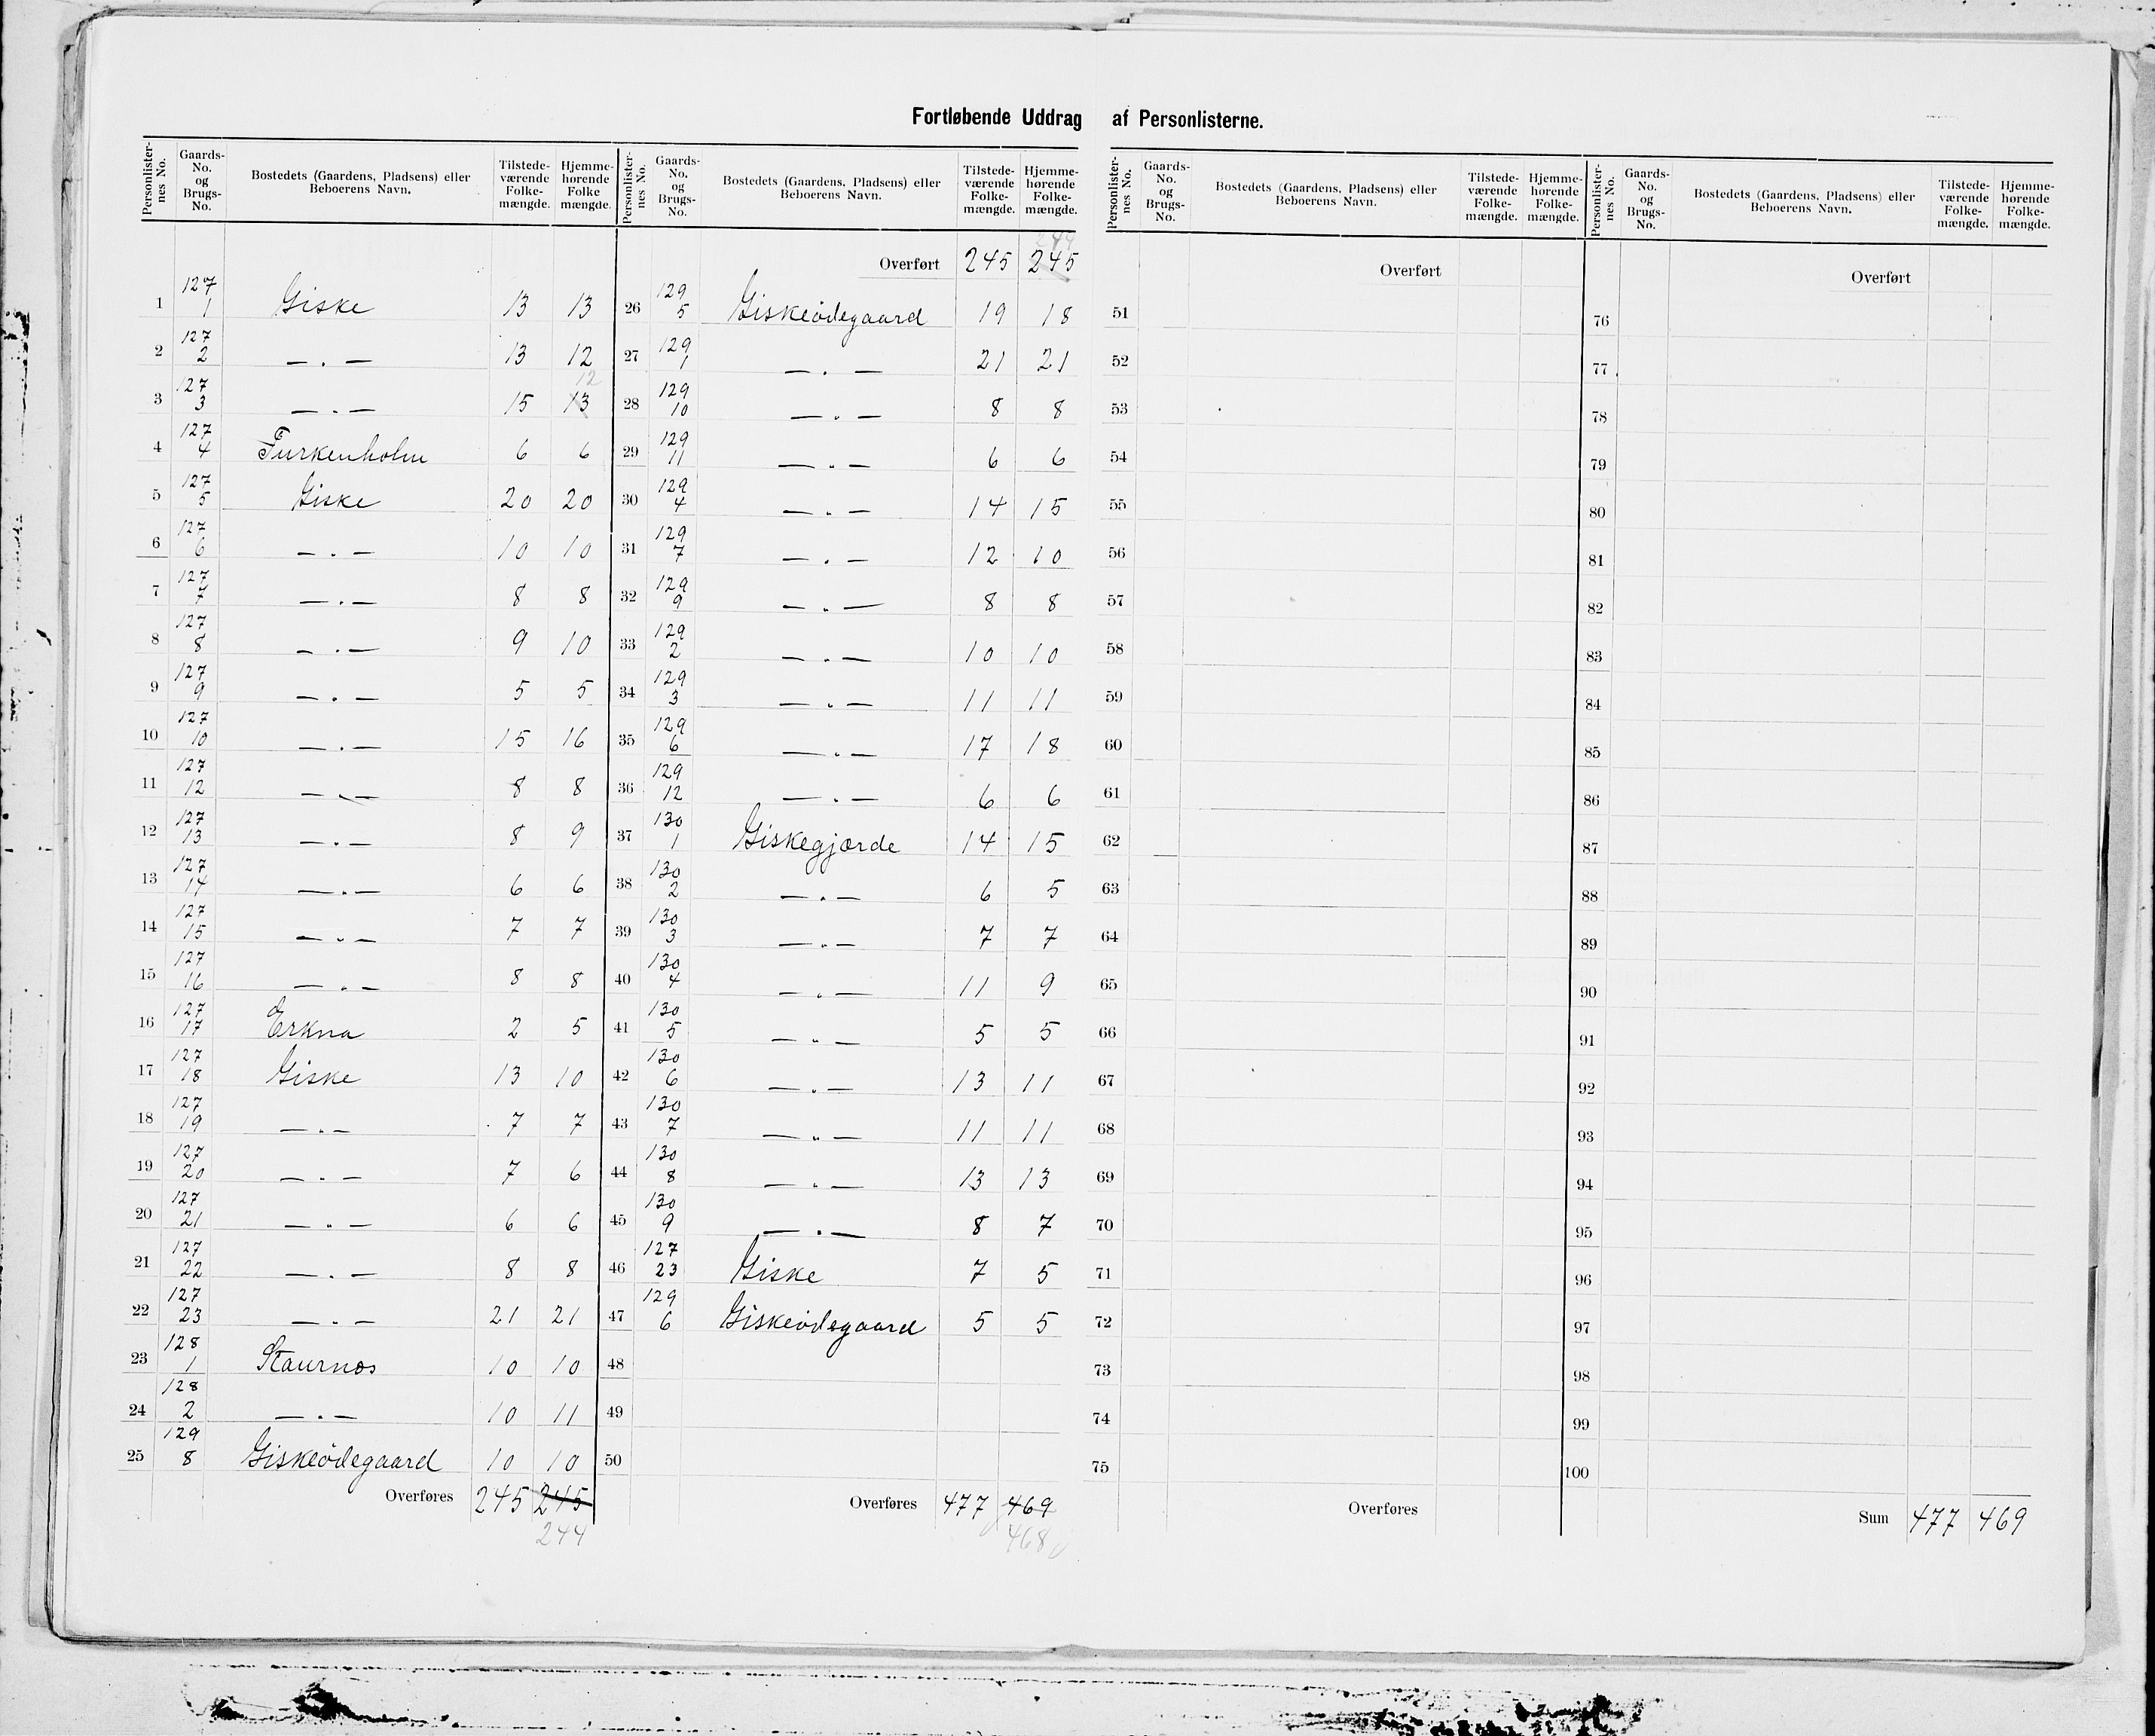 Fortløbende Uddrag af Personlisterne.
Personlisternes No. Gaards-No. og Brugs-No. Bostedets (Gaardens, Pladsens) eller Beboerens Navn. Tilstedeværende Folkemængde. Hjemmehørende Folkemængde.
1 127 1 Giske 13 13
2 127 2 — . — 13 12
3 127 3 — . — 15 13 12
4 127 4 Furkenholm 6 6
5 127 5 Giske 20 20
6 127 6 — . — 10 10
7 127 7 — . — 8 8
8 127 8 — . — 9 10
9 127 9 — . — 5 5
10 127 10 — . — 15 16
11 127 12 — . — 8 8
12 127 13 — . — 8 9
13 127 14 — . — 6 6
14 127 15 — . — 7 7
15 127 16 — . — 8 8
16 127 17 Erkna 2 5
17 127 18 Giske 13 10
18 127 19 — . — 7 7
19 127 20 — . — 7 6
20 127 21 — . — 6 6
21 127 22 — . — 8 8
22 127 23 — . — 21 21
23 128 1 Staurnes 10 10
24 128 2 — . — 10 11
25 129 8 Giskeødegaard 10 10
Overføres 245 245
244
Personlisternes No. Gaards-No. og Brugs-No. Bostedets (Gaardens, Pladsens) eller Beboerens Navn. Tilstedeværende Folkemængde. Hjemmehørende Folkemængde.
244
Overført 245 245
26 129 5 Giskeødegaard 19 18
27 129 1 — . — 21 21
28 129 10 — . — 8 8
29 129 11 — . — 6 6
30 129 4 — . — 14 15
31 129 7 — . — 12 10
32 129 9 — . — 8 8
33 129 2 — . — 10 10
34 129 3 — . — 11 11
35 129 6 — . — 17 18
36 129 12 — . — 6 6
37 130 1 Giskegjærde 14 15
38 130 2 — . — 6 5
39 130 3 — . — 7 7
40 130 4 — . — 11 9
41 130 5 — . — 5 5
42 130 6 — . — 13 11
43 130 7 — . — 11 11
44 130 8 — . — 13 13
45 130 9 — . — 8 7
46 127 23 Giske 7 5
47 129 6 Giskeødegaard 5 5
48
49
50
Overføres 477 469
468
Personlisternes No. Gaards-No. og Brugs-No. Bostedets (Gaardens, Pladsens) eller Beboerens Navn. Tilstedeværende Folkemængde. Hjemmehørende Folkemængde.
Overført
51
52
53
54
55
56
57
58
59
60
61
62
63
64
65
66
67
68
69
70
71
72
73
74
75
Overføres
Personlisternes No. Gaards-No. og Brugs-No. Bostedets (Gaardens, Pladsens) eller Beboerens Navn. Tilstedeværende Folkemængde. Hjemmehørende Folkemængde.
Overført
76
77
78
79
80
81
82
83
84
85
86
87
88
89
90
91
92
93
94
95
96
97
98
99
100
Sum 477 469